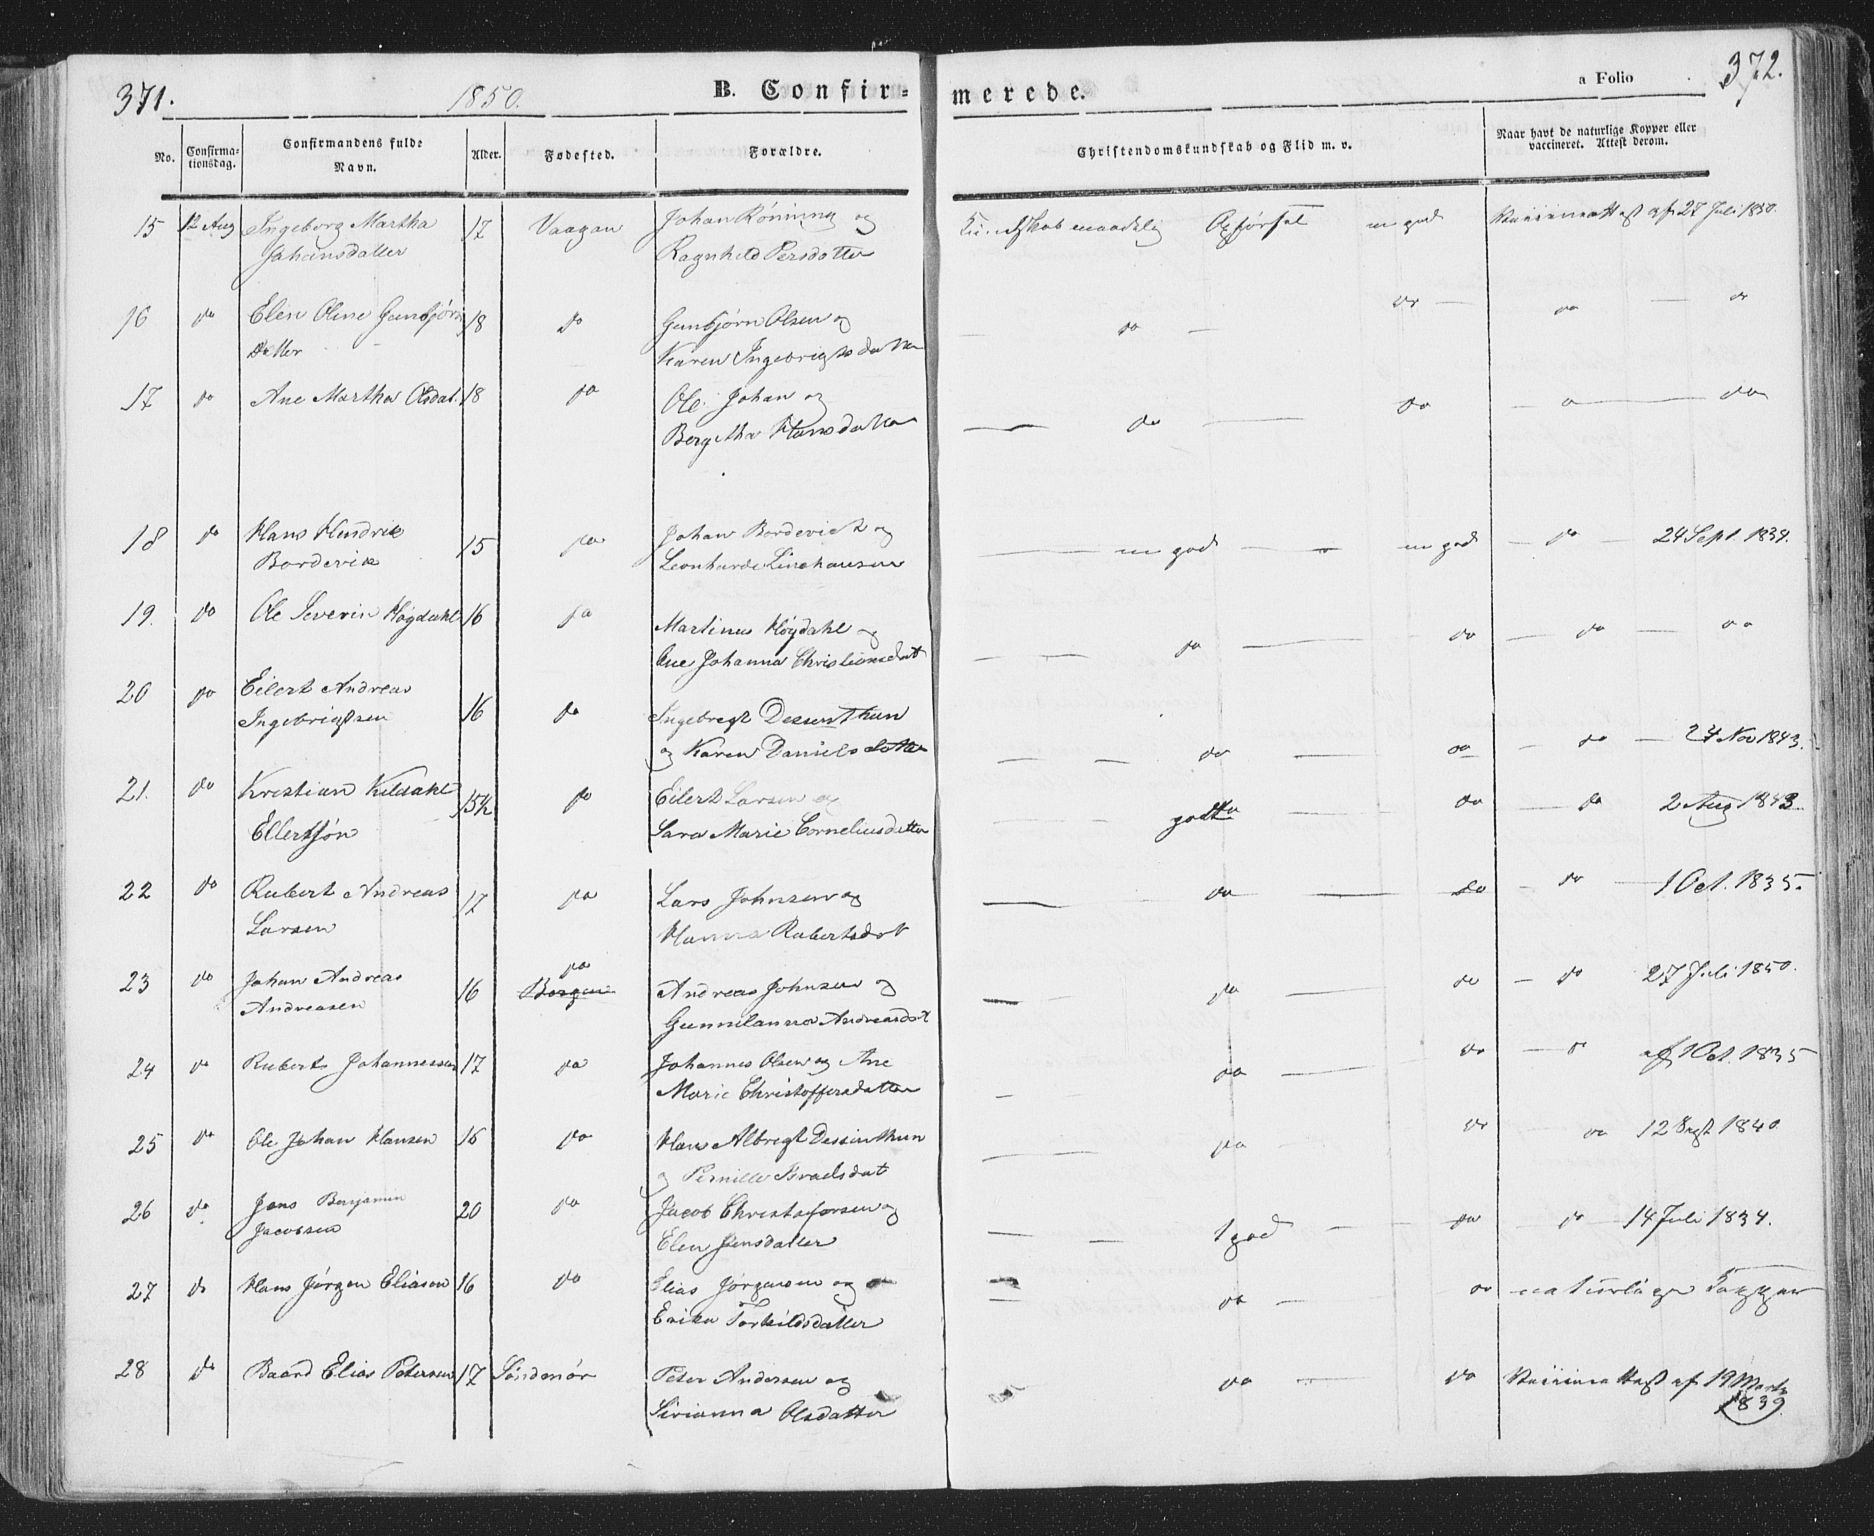 371. 1850. B. Confir- merede. a Folio 372.
No. Confirma-tionsdag. Confirmandens fulde Navn. Alder. Fødested. Forældre. Christendomskundskab og Flid m. v. Naar havt de naturlige Kopper eller vaccineret. Attest derom.
15 12 Aug Ingeborg Martha 17 Vaagan Johan Rönning og Kundskab maadelig Opförsel m god Vaccineattest af 27 Juli 1850.
Johansdatter Ragnhild Persdatter
16 do Elen Oline Gunbjörns 18 do Gunbjörn Olsen og — do — do — do — do
Datter Karen Ingebrigtsdatter
17 do Ane Martha Olsdat. 18 do Ole Johan og — do — do — do — do
Bergitha Hansdatter
18 do Hans Hendrik 15 do Johan Bordevick og — m god — m god — do — 24 Sept. 1834.
Bordevik Leonharde Linehausen
19. do Ole Severin Høgdahl 16 do Martinus Høgdahl og — do — do — do — do
Ane Johanna Christiansdat
20 do Eilert Andreas 16 do Ingebregt Dessenthun — do — do — do — 24 Nov 1843.
Ingebrigtsen og Karen Danielsdatter
21. do Kristian Kildahl 15½ do Eilert Larsen og — godt — do — do 2 Aug 1843.
Ellertsøn Sara Marie Corneliusdatter
22 do Rubert Andreas 17 do Lars Johnsen og — do — do — do — 1 Oct. 1835.
Larsen Hanna Robertsdat
23 do Johan Andreas 16 do Andreas Johnsen og — do — do — do 27 Juli 1850.
Andreasen Bergen Gunnilanna Andreasdat
24 do Rubert Johannessen 17 do Johannes Olsen og Ane — do — do — do af 1 Oct. 1835
Marie Christoffersdatter
25 do Ole Johan Hansen 16 do Hans Albregt Dessinthun — do do do 12 Sept 1840
og Pernille Israelsdat
26 do Jens Benjamin 20 do Jacob Christofersen og — god — do do — 14 Juli 1834.
Jacobsen Elen Jensdatter
27 do Hans Jørgen Eliasen 16 do Elias Jørgensen og — do — do naturlige Kopper
Erika Torkildsdatter
28 do Baard Elias Petersen 17 Söndmør Peter Andersen og do do Vaccineattest af 19 Marts
Sirianna Olsdatter 1839